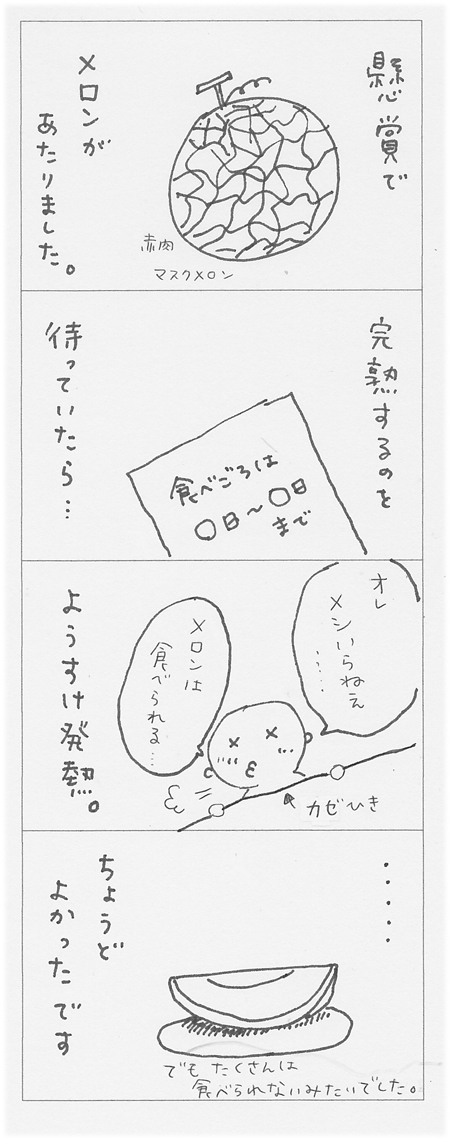 懸賞で
メロンが
あたりました。
赤肉
マスクメロン
完熟するのを
待っていたら…
食べごろは
〇日〜〇日
まで
オレ
メシいらねえ
……
メロンは
食べられる…
カゼひき
ようすけ発熱。
・・・・・
ちょうど
よかったです
でも たくさんは
食べられないみたいでした。